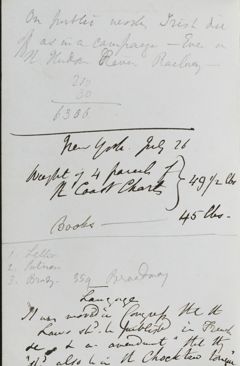 On public works, Irish die
off as in a campaign – Even on
N Hudson River Railway –
210
30
6306
New York. July 26
Weight of 4 parcels of
N Coast Charts } 49 1/2 lbs
Books — 45 lbs.
1. Letter
2. Putnam
3. Brady. 359 Broadway
Language
It was moved in Congress that the
Laws shd. be published in French
& an amendment that they
also be in N Choctaw tongue